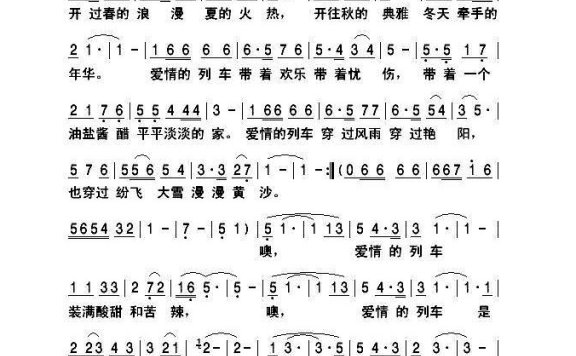 开 过春的 浪 漫 夏的 火 热， 开往秋的 典雅 冬天 牵手的
2 1· | 1 - | 1 6 6 6 6 | 6·5 7 6 | 5·4 3 4 | 5 - | 5·5 1 7· |
年华。 爱情的 列 车 带 着 欢乐 带 着忧 伤， 带 着 一个
2 1 7 6 | 5 5 4 44 | 3 - | 1 66 6 6 6 | 6·5 77 | 6·6 5 54 | 3 5· |
油盐酱 醋 平平淡淡的 家。 爱情的列车 穿 过风雨 穿 过艳 阳，
5 7 6 | 55 6 5 4 | 3·3 27 | 1 - | 1 - :‖ (0 6 6 6 | 6 6 6 | 667 1 6 |
也穿过 纷飞 大雪 漫漫 黄 沙。
5654 32 | 1 - | 7 - | 5 1) | 5 1· | 1 13 | 5 4·3 | 3 1 | 1 - |
噢， 爱情 的 列 车
1 1 33 | 2 72 | 1 6 5· | 5 - | 5 1· | 1 13 | 5 4·3 | 3 1 | 1·1 |
装满酸甜 和苦 辣， 噢， 爱情 的 列 车 是